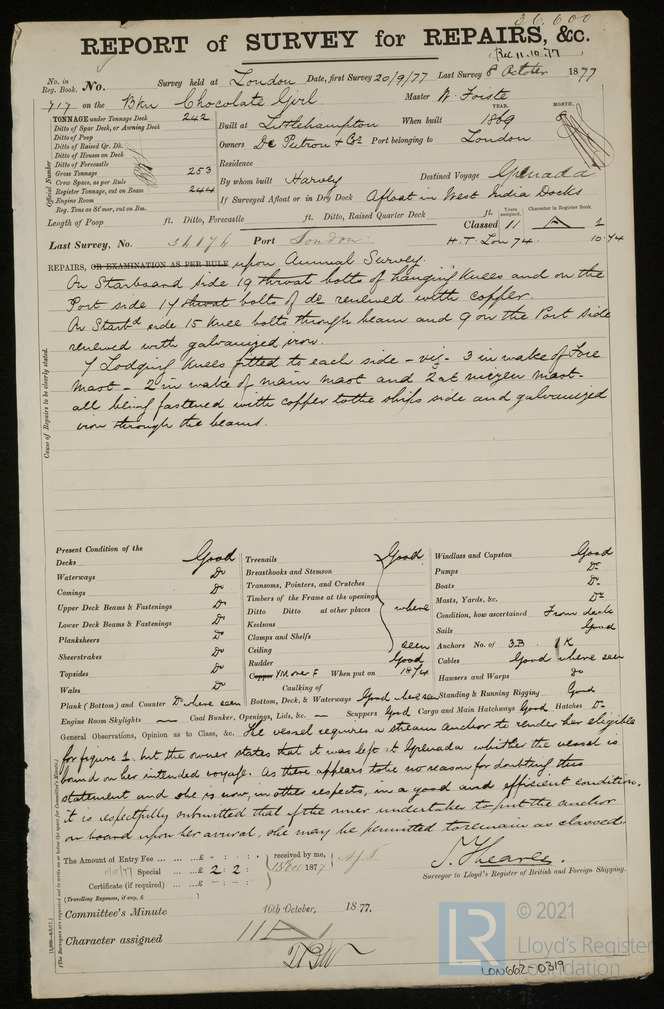 36,600
REPORT of SURVEY for REPAIRS, &c.
Rec 11.10.77
No. in Reg. Book. No. Survey held at London Date, first Survey 20/9/77 Last Survey 8 October 1877
717 on the Bkn Chocolate Girl Master W. Forste
TONNAGE under Tonnage Deck 242
Ditto of Spar Deck, or Awning Deck
Ditto of Poop
Ditto of Raised Qr. Dk.
Ditto of Houses on Deck
Ditto of Forecastle
Gross Tonnage 253
Crew Space, as per Rule
Register Tonnage, cut on Beam 244
Engine Room
Reg. Tons as St'mer, cut on Bm.
Official Number
YEAR. MONTH.
Built at Littlehampton When built 1869 8
Owners De Putron & Co. Port belonging to London
Residence
By whom built Harvey Destined Voyage Grenada
If Surveyed Afloat or in Dry Dock Afloat in West India Docks
Length of Poop ft. Ditto, Forecastle ft. Ditto, Raised Quarter Deck ft.
Years assigned. Character in Register Book.
Classed 11 A 1
Last Survey, No. 34176 Port London H.T. Lon 74. 10.74
REPAIRS, OR EXAMINATION AS PER RULE upon Annual Survey.
On Starboard side 19 throat bolts of hanging knees and on the
Port side 14 throat bolts of do renewed with copper.
On Starbd side 15 knee bolts through beam and 9 on the Port side
renewed with galvanized iron.
7 Lodging knees fitted to each side - viz - 3 in wake of Fore
mast - 2 in wake of main mast and 2 at mizen mast -
all being fastened with copper to the ships side and galvanized
iron through the beams.
Cause of Repairs to be clearly stated.
Present Condition of the
Decks Good
Waterways Do
Comings Do
Upper Deck Beams & Fastenings Do
Lower Deck Beams & Fastenings Do
Planksheers Do
Sheerstrakes Do
Topsides Do
Wales Do
Plank (Bottom) and Counter Do where seen
Treenails Good
Breasthooks and Stemson
Transoms, Pointers, and Crutches
Timbers of the Frame at the openings
Ditto Ditto at other places where
Keelsons
Clamps and Shelfs
Ceiling seen
Rudder Good
Copper YM over F When put on 1874
Caulking of
Bottom, Deck, & Waterways Good where seen
Windlass and Capstan Good
Pumps Do
Boats Do
Masts, Yards, &c. Do
Condition, how ascertained From deck
Sails Good
Anchors No. of 3.B. 1 K
Cables Good where seen
Hawsers and Warps Do
Standing & Running Rigging Good
Engine Room Skylights — Coal Bunker, Openings, Lids, &c. — Scuppers Good Cargo and Main Hatchways Good Hatches Do
General Observations, Opinion as to Class, &c. The vessel requires a stream anchor to render her eligible
for figure 1. but the owner states that it was left at Grenada whither the vessel is
bound on her intended voyage. As there appears to be no reason for doubting this
statement and she is now, in other respects, in a good and efficient condition,
it is respectfully submitted that if the owner undertakes to put the anchor
on board upon her arrival, she may be permitted to remain as classed.
The Amount of Entry Fee ... £ " : " : received by me,
Special ... £ 2 : 2 : 15 Oct 1877
Certificate (if required) ... £
(Travelling Expenses, if any, £ )
Surveyor to Lloyd's Register of British and Foreign Shipping.
Committee's Minute 16th October, 1877.
Character assigned 11 A 1
© 2021
LR
Lloyd's Register
Foundation
LON662-0319